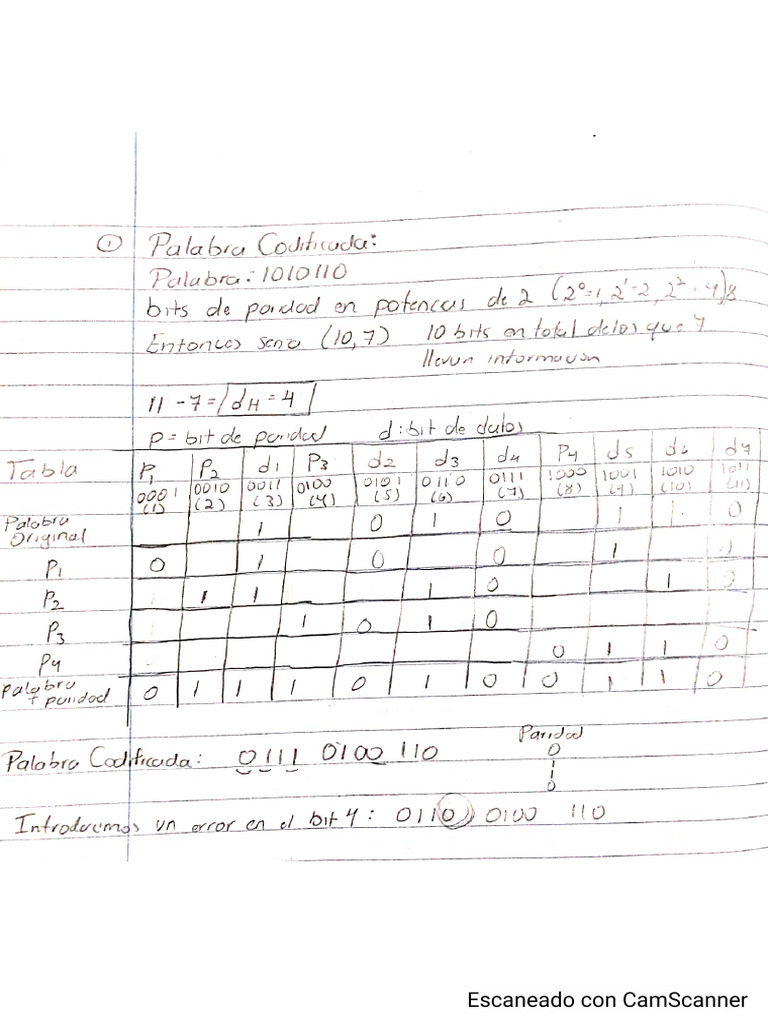 ① Palabra Codificada:
Palabra: 1010110
bits de paridad en potencias de 2 (2⁰=1, 2¹=2, 2²=4), 8
Entonces seria (10,7) 10 bits en total de los que 7
llevan informacion
11 - 7 = dH = 4
p = bit de paridad d: bit de datos
Tabla P1 P2 d1 P3 d2 d3 d4 P4 d5 d6 d7
0001 0010 0011 0100 0101 0110 0111 1000 1001 1010 1011
(1) (2) (3) (4) (5) (6) (7) (8) (9) (10) (11)
Palabra Original 1 0 1 0 1 1 0
P1 0 1 0 0 1 0
P2 1 1 1 0 1 0
P3 1 0 1 0
P4 0 1 1 0
Palabra + paridad 0 1 1 1 0 1 0 0 1 1 0
Paridad
Palabra Codificada: 0111 0100 110 0
1
0
Introducemos un error en el bit 4: 0110 0100 110
Escaneado con CamScanner